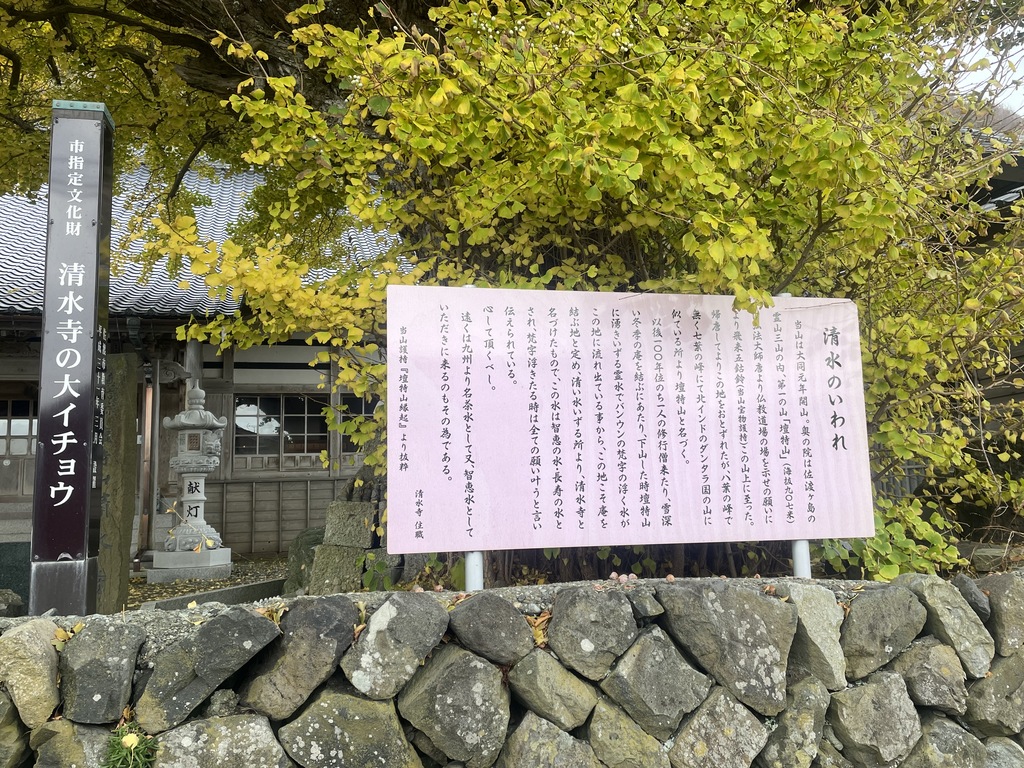 市指定文化財
清水寺の大イチョウ
献灯
清水のいわれ
当山は大同元年開山。奥の院は佐渡ヶ島の
霊山三山の内、第一の山「壇特山」(海抜九〇七米)
法大師唐より仏教道場の場を示せの願いに
より飛来五鈷鈴(当山宝物護持)この山上に至った。
帰唐してよりこの地をおとずれたが、八葉の峰で
無く七葉の峰にて北インドのダンタラ国の山に
似ている所より壇特山と名づく。
以後一〇〇年位のち一人の修行僧来たり、雪深
い冬季の庵を結ぶにあたり、下山した時壇特山
に湧きいずる霊水でバンウンの梵字の浮く水が
この地に流れ出ている事から、この地こそ庵を
結ぶ地と定め、清い水いずる所より、清水寺と
名づけたもので、この水は智恵の水・長寿の水と
され、梵字浮きたる時は全ての願い叶うと言い
伝えられている。
心して頂くべし。
遠くは九州より名茶水として又、智恵水として
いただきに来るのもその為である。
当山護持『壇特山縁起』より抜粋
清水寺 住職